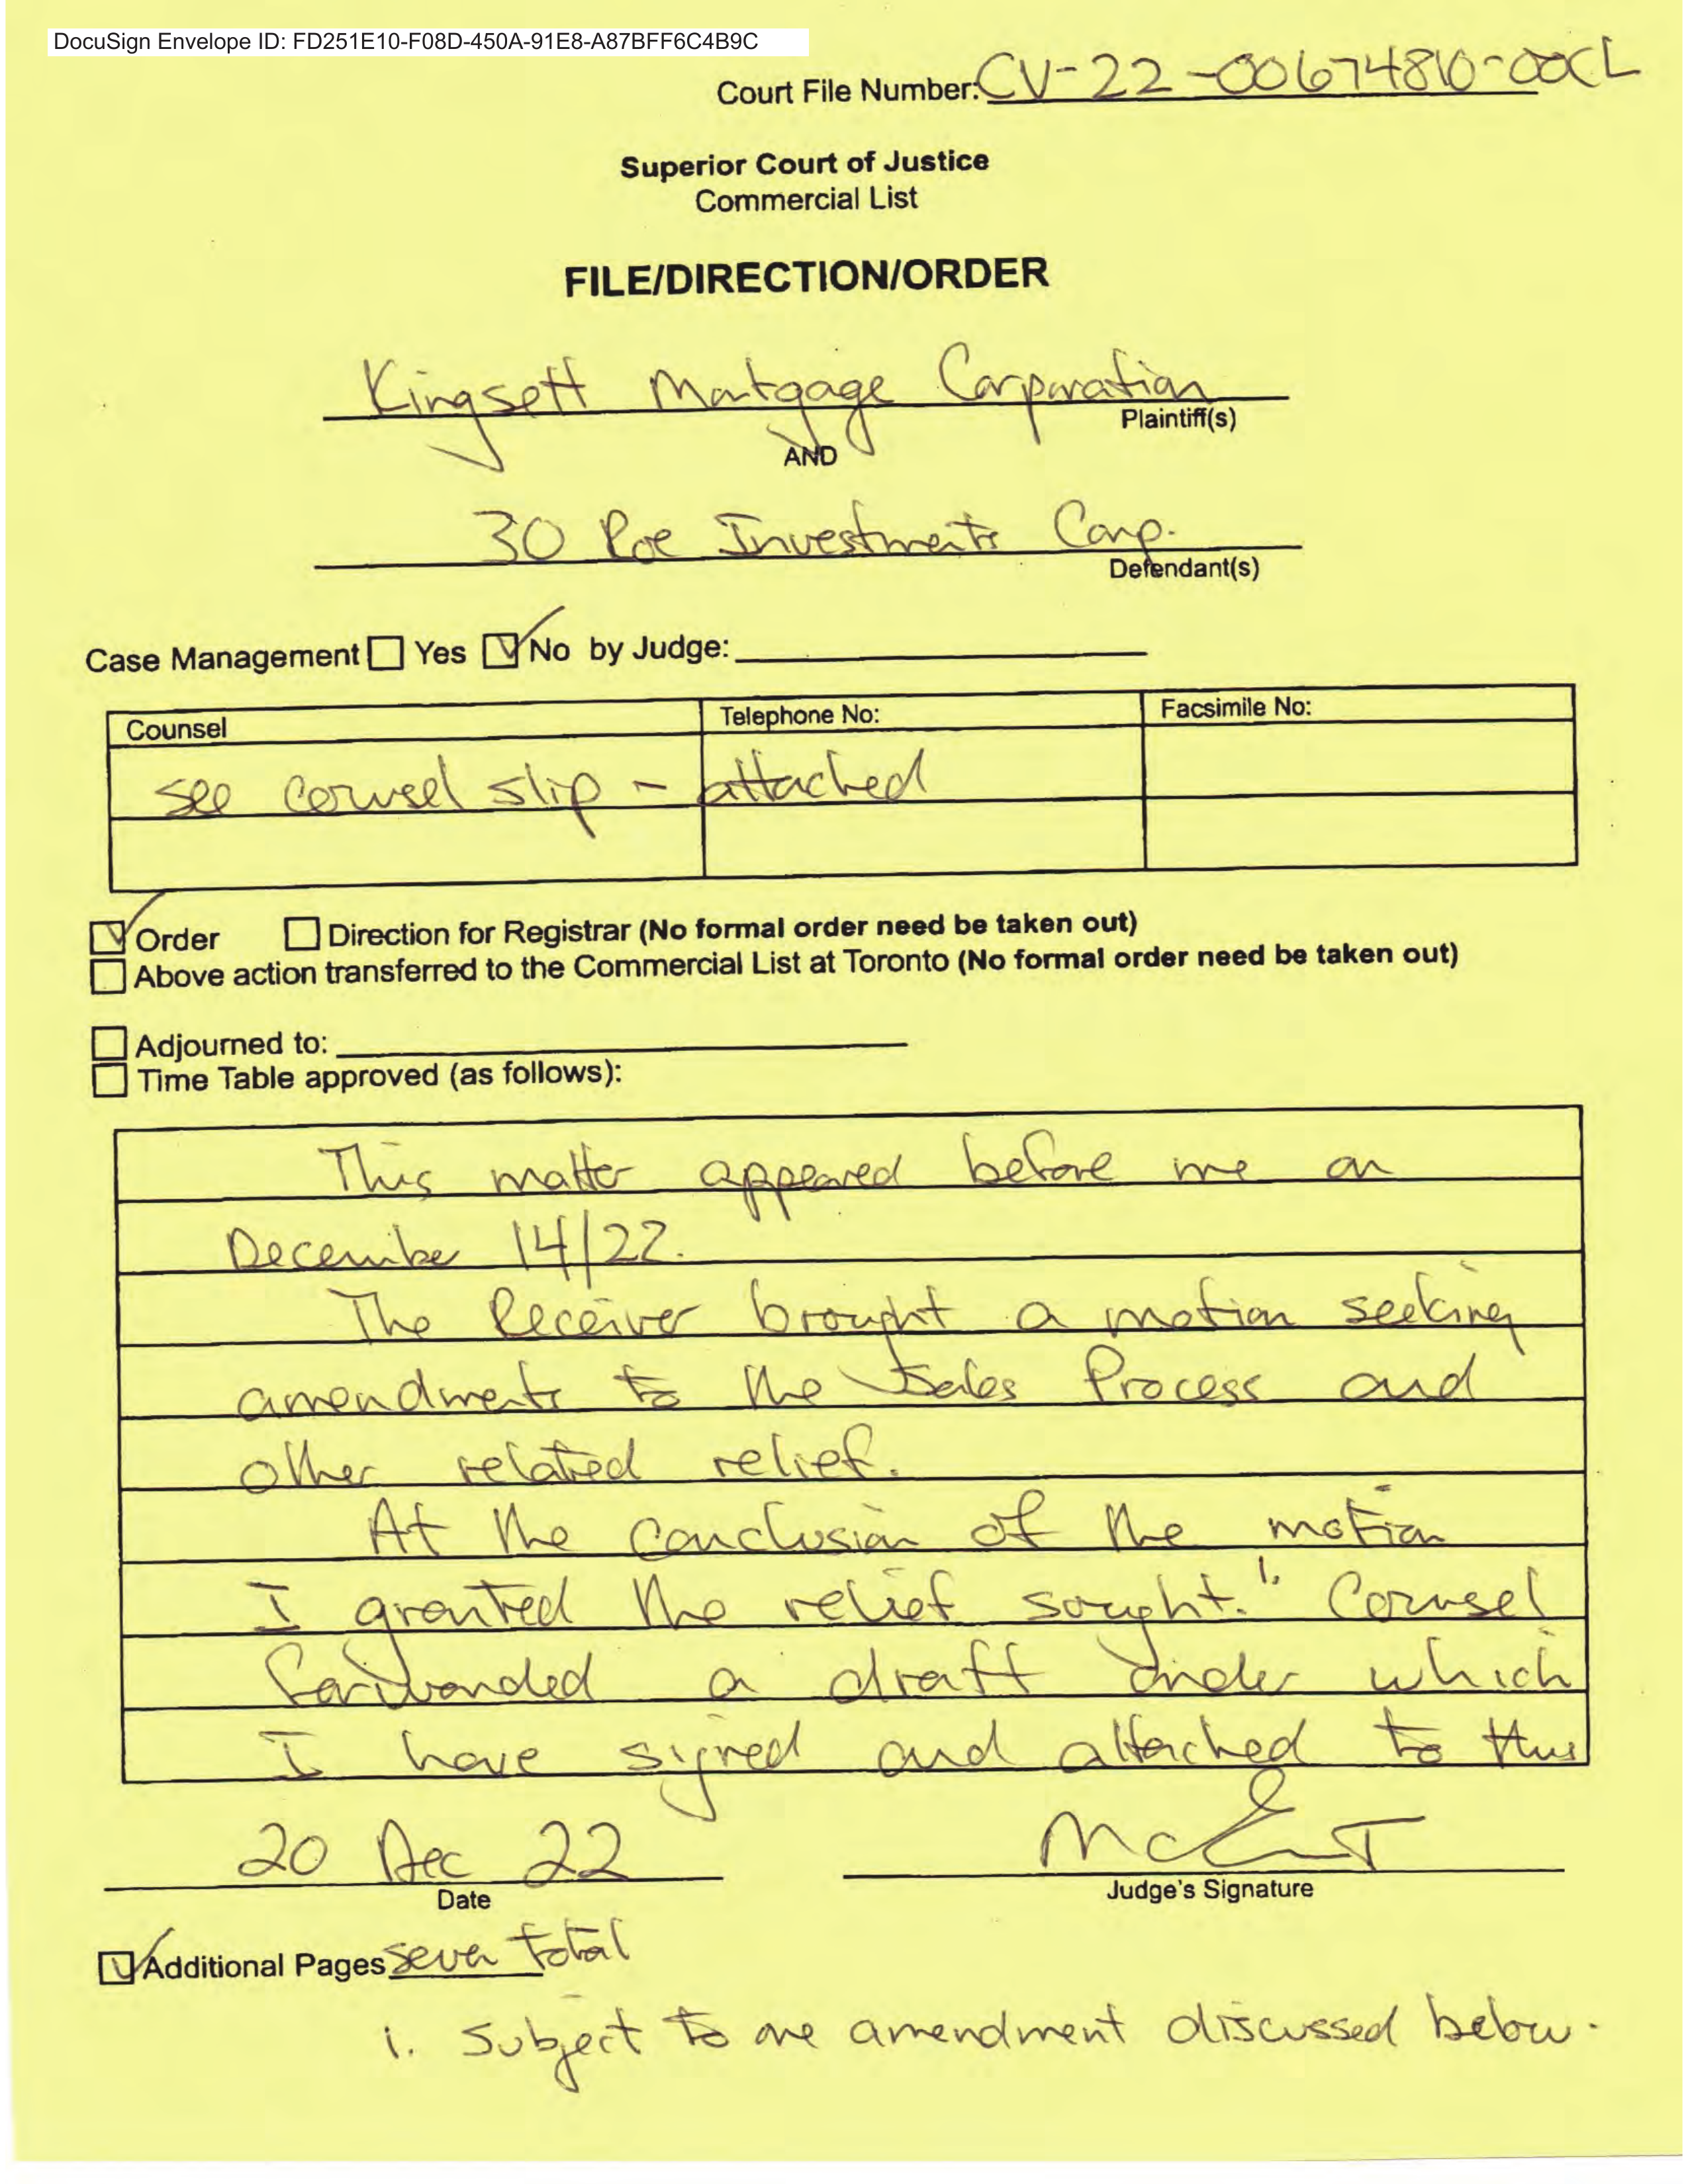 DocuSign Envelope ID: FD251E10-F08D-450A-91E8-A87BFF6C4B9C
Court File Number: CV-22-00674810-00CL
Superior Court of Justice
Commercial List
FILE/DIRECTION/ORDER
Kingsett Mortgage Corporation
Plaintiff(s)
AND
30 Roe Investments Corp.
Defendant(s)
Case Management ☐ Yes ☑ No by Judge:
Counsel Telephone No: Facsimile No:
see counsel slip - attached
☑ Order ☐ Direction for Registrar (No formal order need be taken out)
☐ Above action transferred to the Commercial List at Toronto (No formal order need be taken out)
☐ Adjourned to:
☐ Time Table approved (as follows):
This matter appeared before me on
December 14/22.
The Receiver brought a motion seeking
amendments to the Sales Process and
other related relief.
At the conclusion of the motion
I granted the relief sought.1. Counsel
forwarded a draft order which
I have signed and attached to this
20 Dec 22
Date Judge's Signature
☑ Additional Pages seven total
1. Subject to one amendment discussed below.